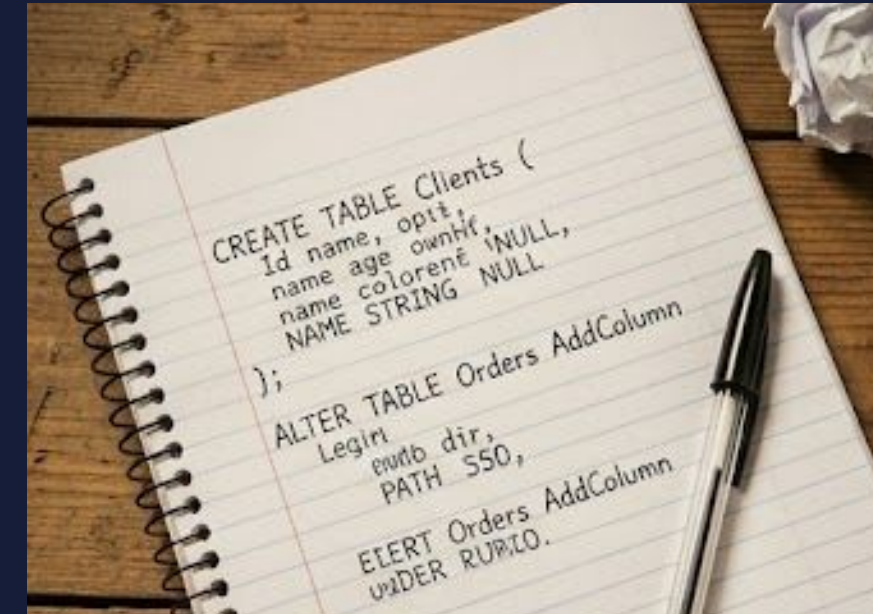 CREATE TABLE Clients (
Id name, opit,
name age
name colorent NULL,
NAME STRING NULL
);
ALTER TABLE Orders AddColumn
Legin
dir,
PATH S50,
Orders AddColumn